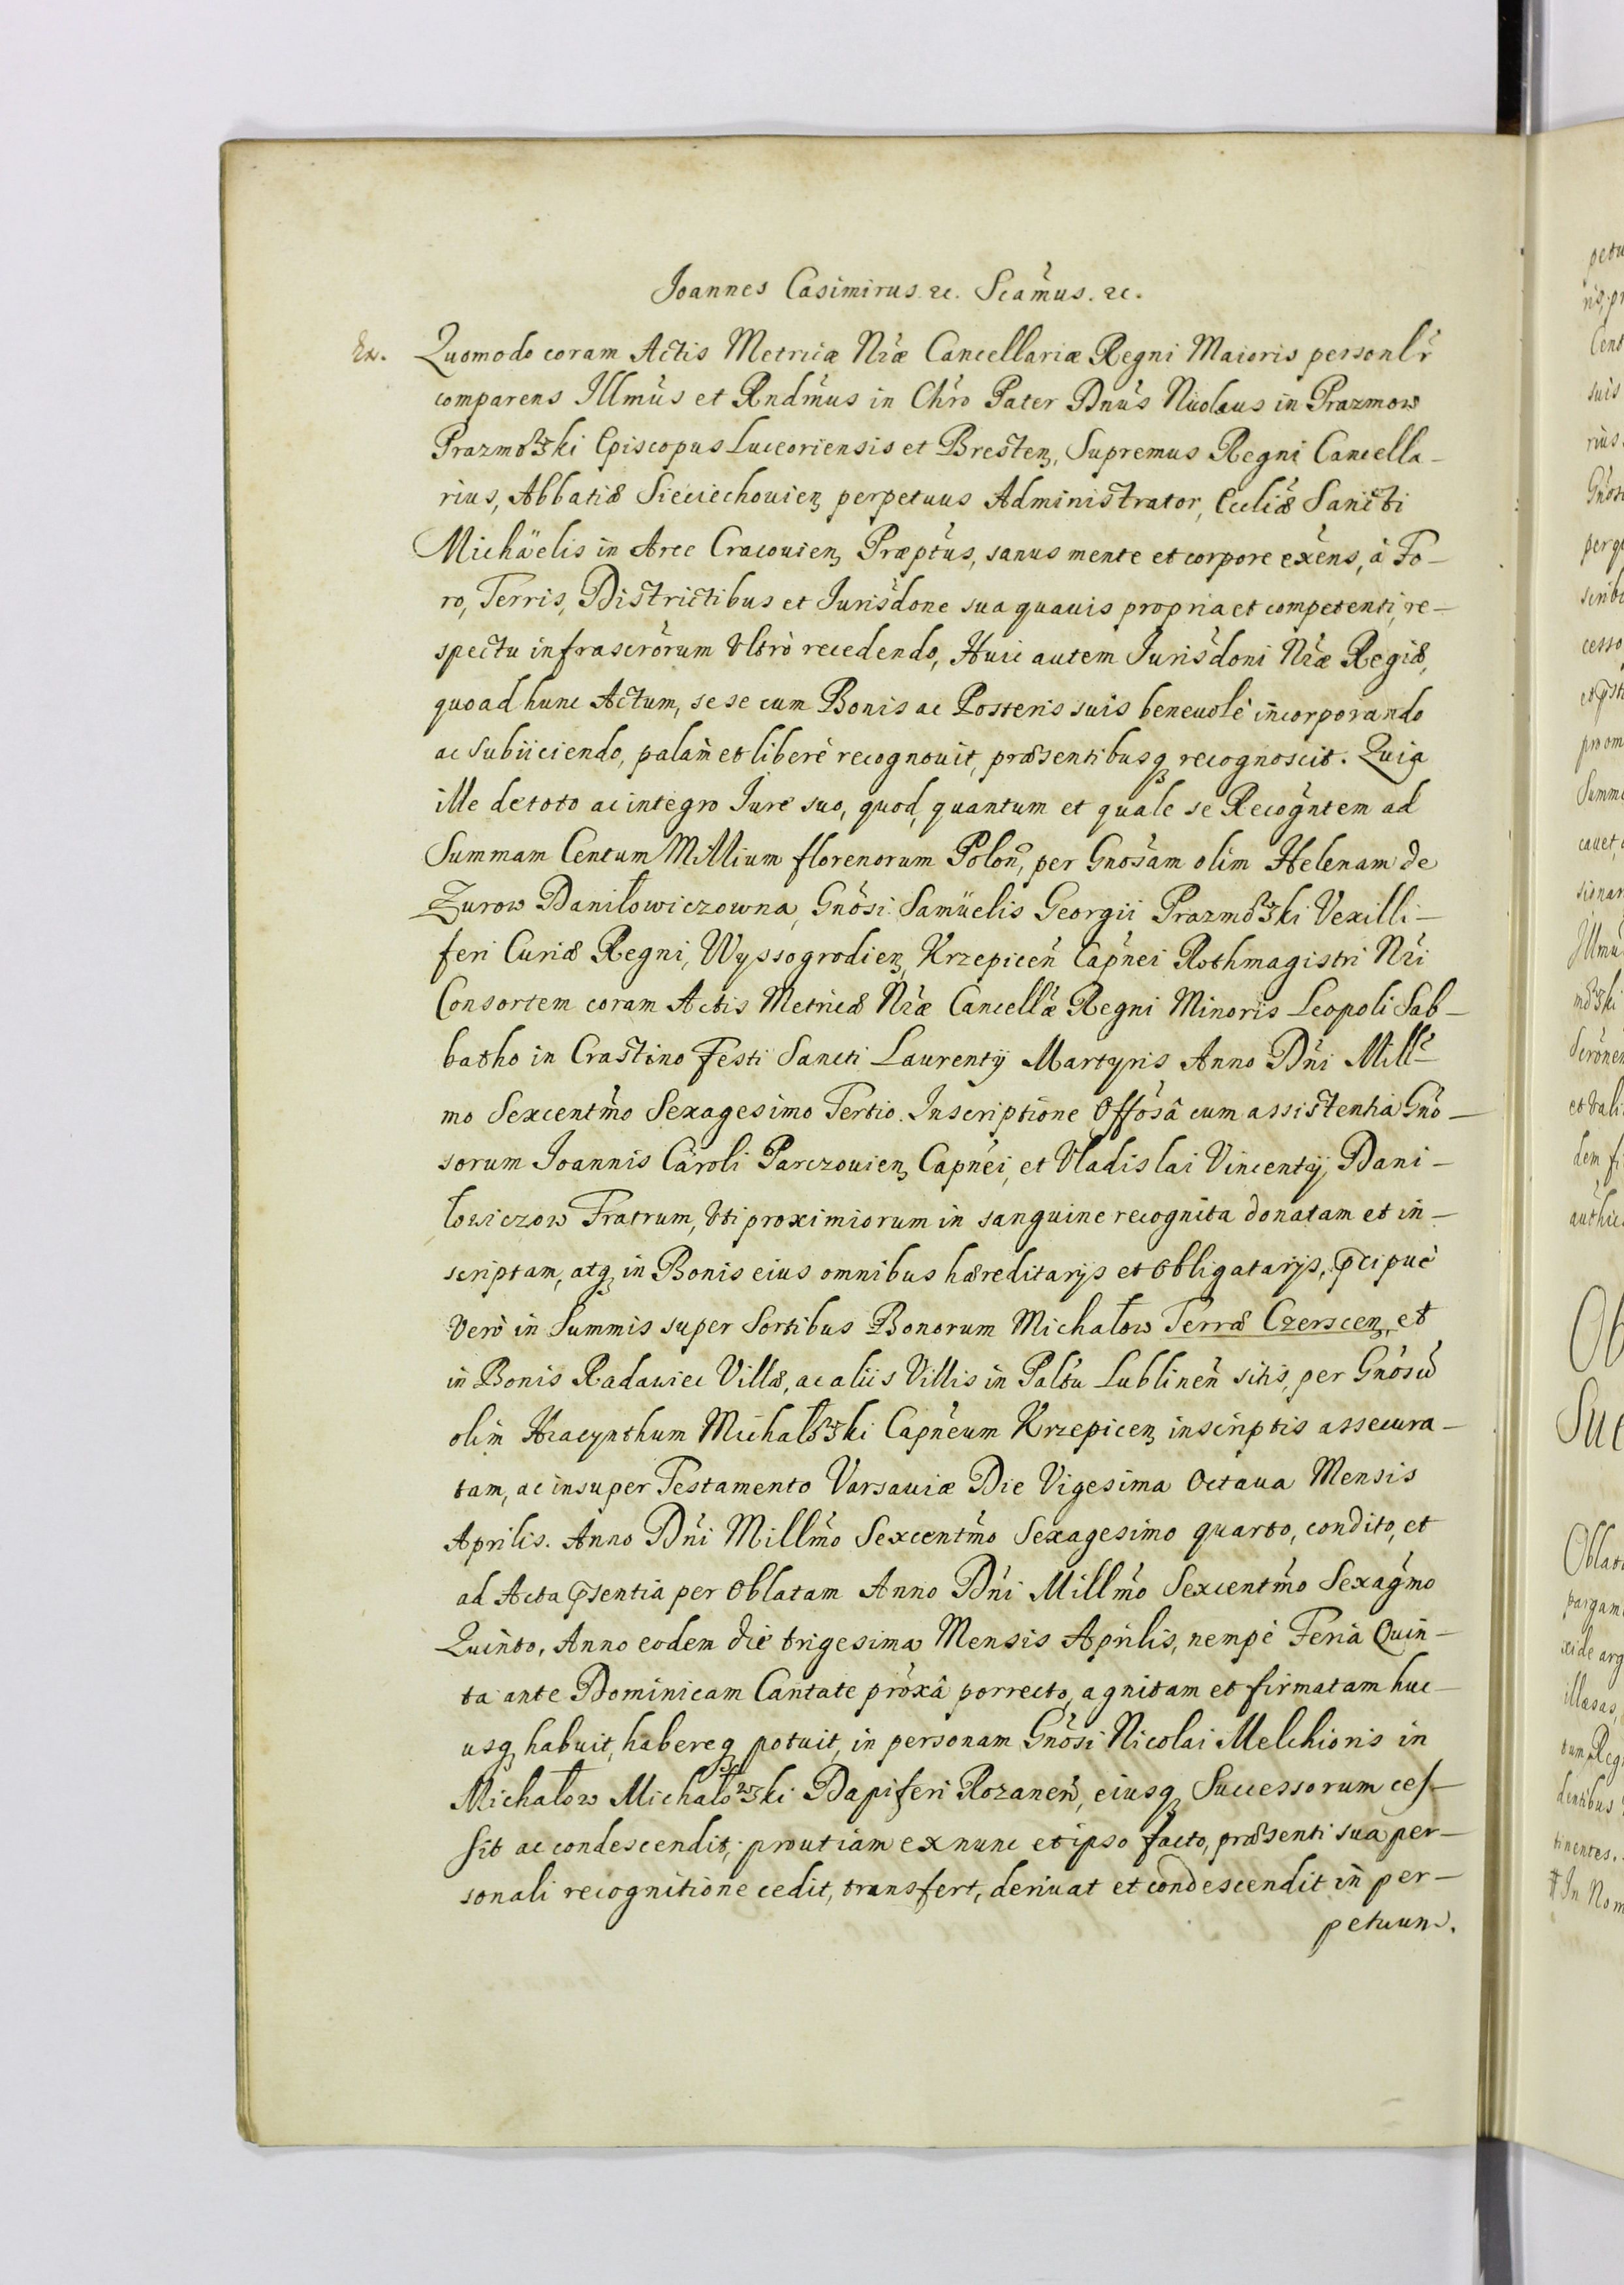 Joannes Casimirus. &c. Scamus. &c.
Ex. Quomodo coram Actis Metricæ Nræ Cancellariæ Regni Maioris personlr
comparens Illmus et Rndmus in Chro Pater Dnus Nicolaus in Prazmow
Prazmowski Episcopus Luceoriensis et Bresten, Supremus Regni Cancella-
rius, Abbatiæ Sieciechouien perpetuus Administrator, Eccliæ Sancti
Michäelis in Arce Cracouien Præptus, sanus mente et corpore exens, à Fo-
ro, Terris, Districtibus et Jurisdone sua quauis propria et competenti, re-
spectu infrascrorum Vltrò recedendo, Huic autem Jurisdoni Nræ Regiæ,
quoad hunc Actum, se se cum Bonis ac Posteris suis beneuolè incorporando
ac subiiciendo, palàm et liberè recognouit, præsentibusq recognoscit. Quia
ille de toto ac integro Jure suo, quod, quantum et quale se Recogntem ad
Summam Centum Millium florenorum Polon, per Gnosam olim Helenam de
Zurow Daniłowiczowna, Gnosi Samüelis Georgii Prazmowski Vexilli-
feri Curiæ Regni, Wyssogrodien, Krzepicen Capnei Rothmagistri Nri
Consortem coram Actis Metricæ Nræ Cancellæ Regni Minoris Leopoli Sab-
batho in Crastino Festi Sancti Laurentij Martyris Anno Dni Mill-
mo Sexcentmo Sexagesimo Tertio. Inscriptione Offosâ cum assistentia Gno-
sorum Joannis Caroli Parczouien Capnei, et Vladislai Vincentij Dani-
łowiczow Fratrum, Vti proximiorum in sanguine recognita donatam et in-
scriptam, atq in Bonis eius omnibus hæreditarijs et obligatarijs, pcipuè
Verò in Summis super Sortibus Bonorum Michałow Terræ Czerscen, et
in Bonis Radawiec Villæ, ac aliis Villis in Paltu Lublinen sitis, per Gnosũ
olim Hiacynthum Michałowski Capneum Krzepicen inscriptis assecura-
tam, ac insuper Testamento Varsauiæ Die Vigesima Octaua Mensis
Aprilis. Anno Dni Millmo Sexcentmo Sexagesimo quarto, condito, et
ad Acta psentia per Oblatam Anno Dni Millmo Sexcentmo Sexagmo
Quinto, Anno eodem die trigesima Mensis Aprilis, nempè Feria Quin-
ta ante Dominicam Cantate proxâ porrecto, agnitam et firmatam huc-
usq habuit, habereq potuit, in personam Gnosi Nicolai Melchioris in
Michałow Michałowski Dapiferi Rozanen, eiusq Successorum ces-
sit ac condescendit, prout iam ex nunc et ipso facto, præsenti sua per-
sonali recognitione cedit, transfert, deriuat et condescendit in per-
petuum.